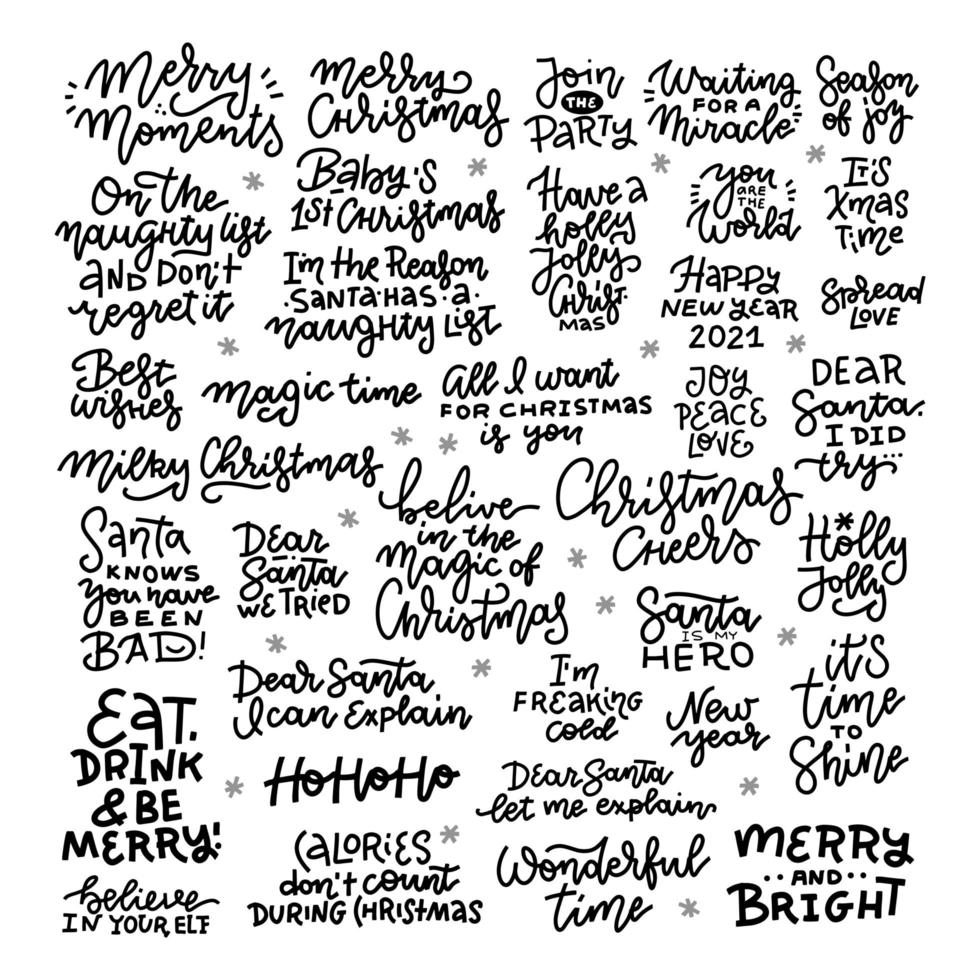 Merry
Moments
Merry
Christmas
Join
THE
PARTY
Waiting
FOR A
Miracle
Season
of joy
On the
naughty list
AND Don't
regret it
Baby's
1st Christmas
I'm the Reason
SANTA HAS a
naughty List
Have a
holly
Jolly
Christ
MAS
you
ARE
THE
World
It's
Xmas
Time
HAPPY
NEW YEAR
2021
Spread
LOVE
Best
wishes
magic time
All I want
FOR CHRISTMAS
is you
JOY
PEACE
LOVE
DEAR
Santa.
I DID
try...
Milky Christmas
belive
in the
Magic of
Christmas
Christmas
CHEERS
Holly
Jolly
Santa
KNOWS
you have
BEEN
BAD!
Dear
Santa
WE TRIED
Santa
IS MY
HERO
Dear Santa,
I can Explain
I'm
FREAKING
cold
New
year
it's
time
TO
Shine
EAT,
DRINK
& BE
MERRY!
HoHoHo
Dear Santa
let me explain
believe
IN YOUR ELF
CALORIES
don't count
DURING CHRISTMAS
Wonderful
time
MERRY
··AND··
BRIGHT